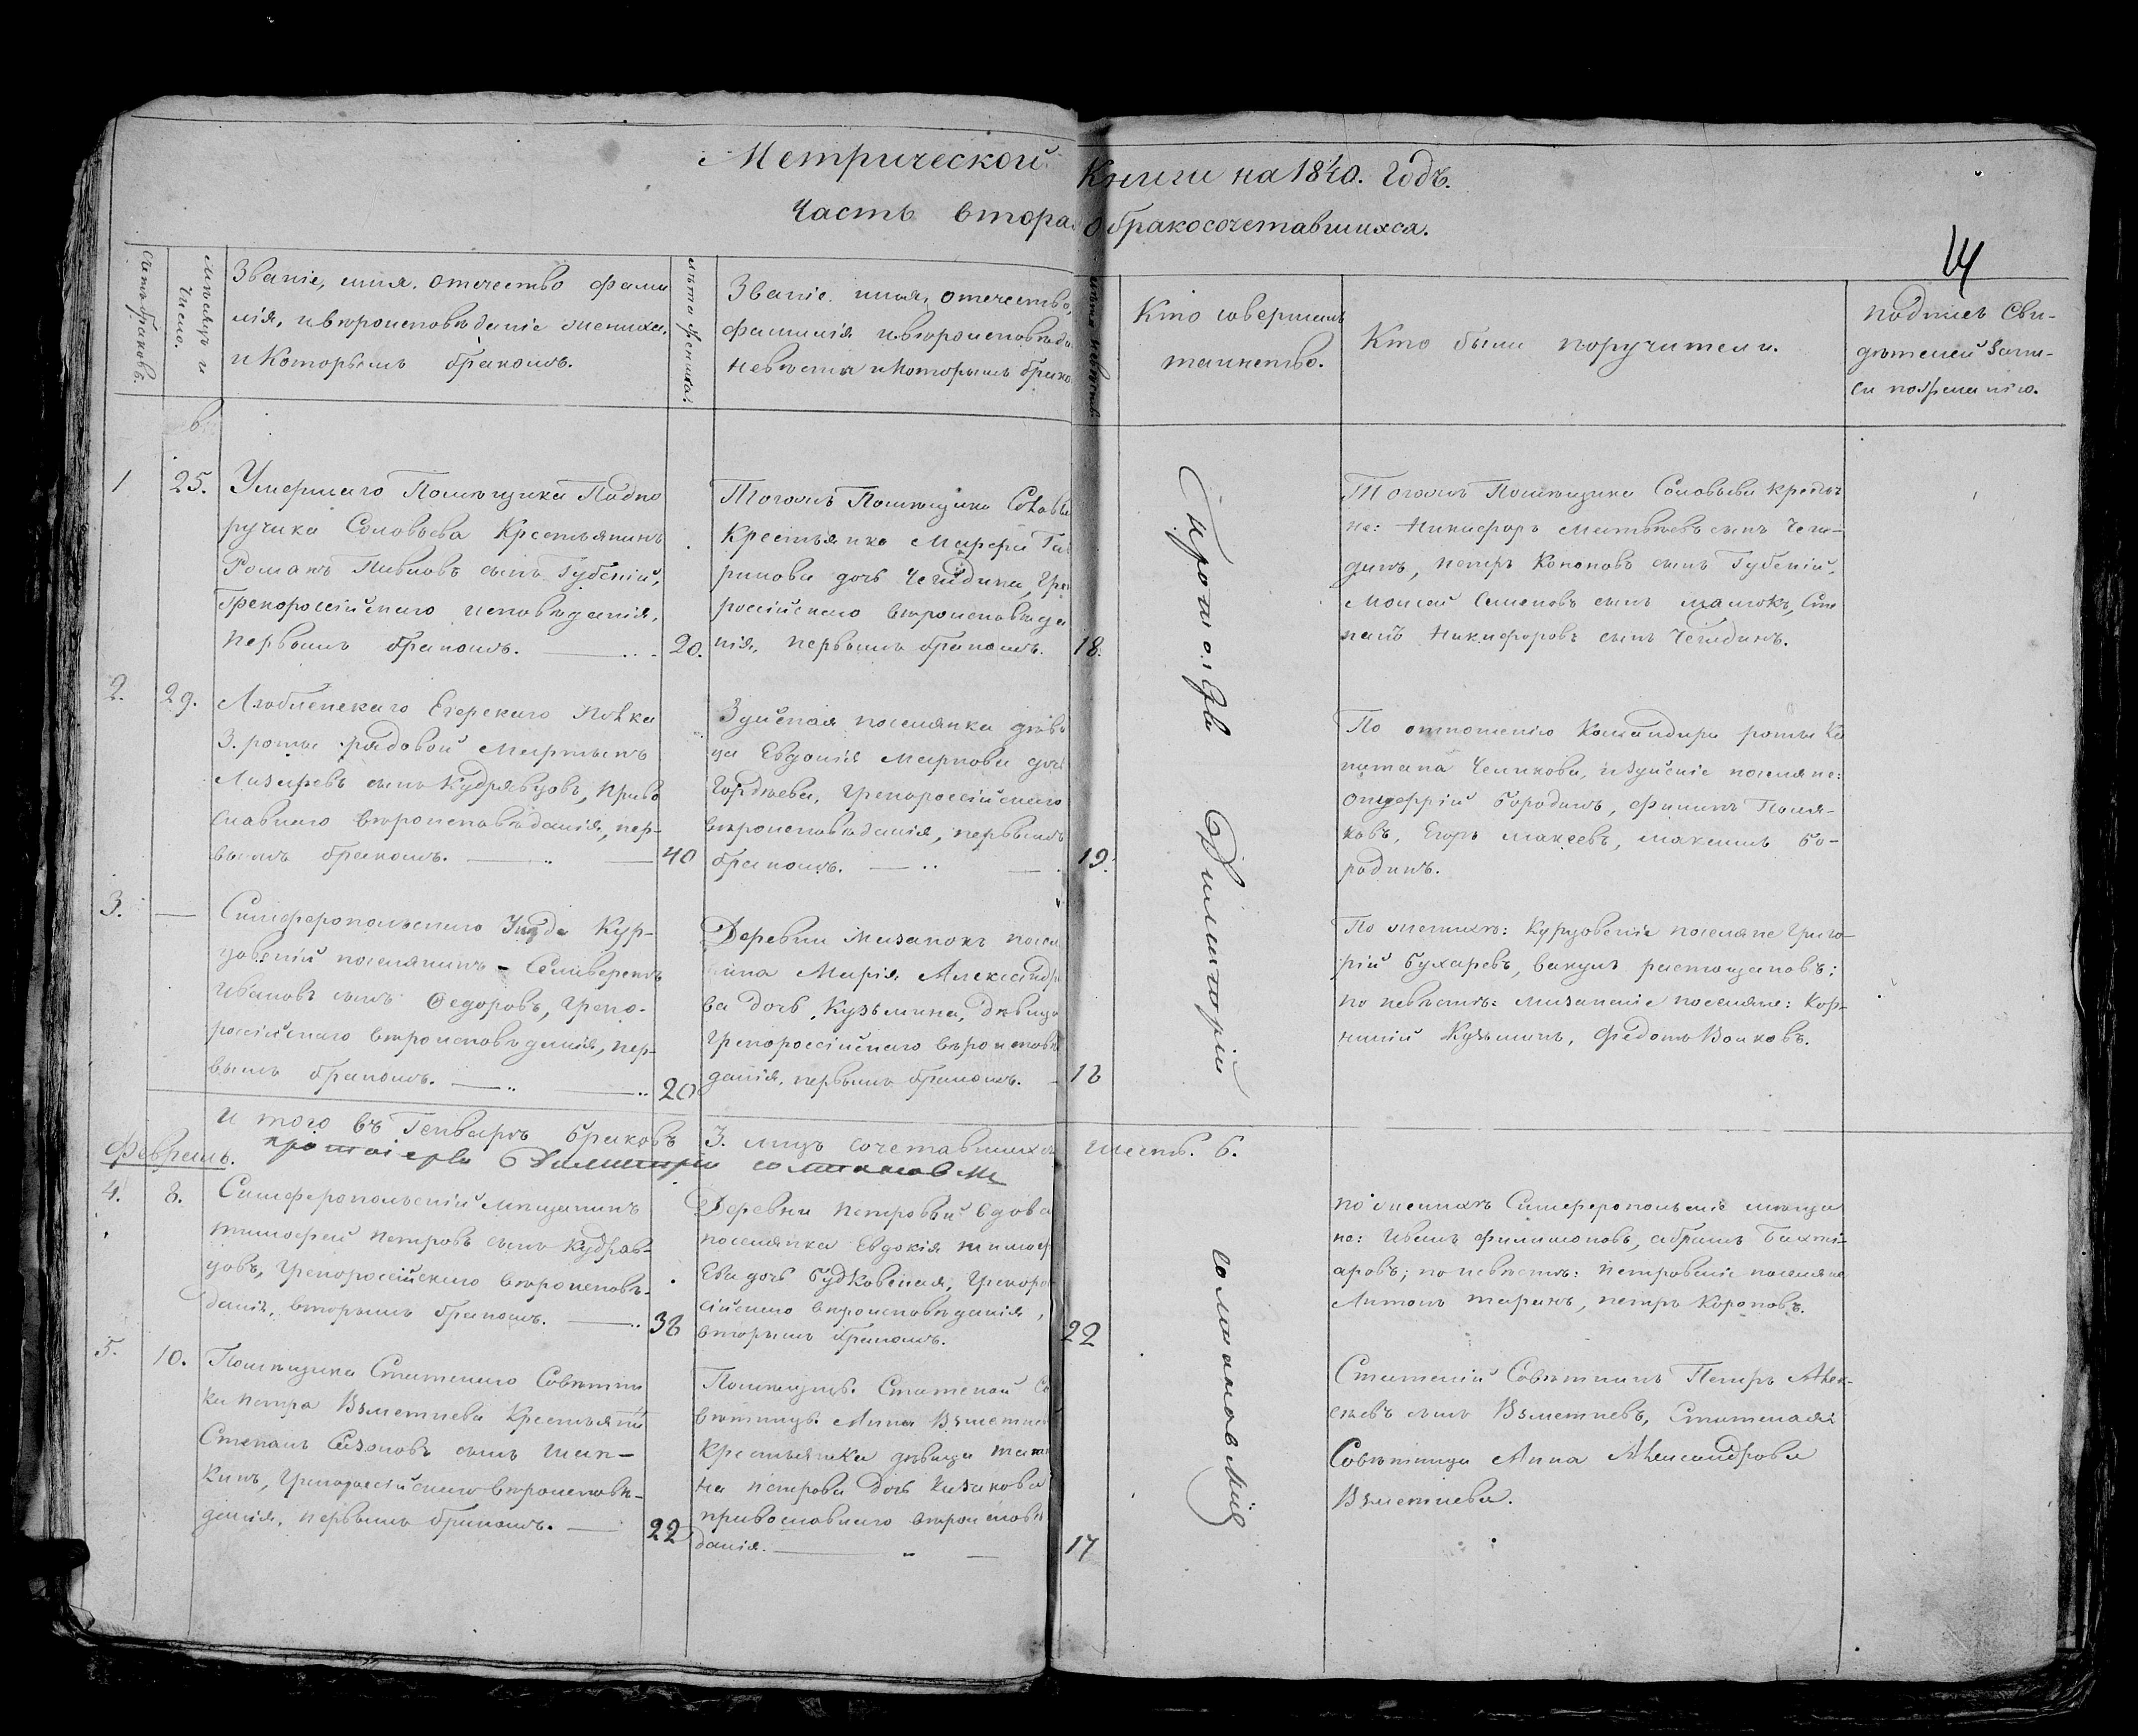 Метрической Книги на 1840. Годъ.
Часть втора о бракосочетавшихся.
14
Счетъ браковъ.
Мѣсяцъ и
число.
Званіе, имя, отечество фами
лія, и вѣроисповѣданіе жениха,
и Которымъ бракомъ.
лѣта жениха.
Званіе, имя, отечество,
фамилія и вѣроисповѣда
невѣсты и которымъ брако
лѣта невѣсты.
Кто совершалъ
таинство.
Кто были поручители.
подписъ Сви-
дѣтелей Запи-
си по желанію.
1
25.
Умершаго Помѣщика Подпо
ручика Соловьева Крестьянинъ
Романъ Павловъ сынъ Губскій,
Грекороссійскаго исповѣданія,
первымъ бракомъ.
20.
Тогожъ Помѣщика Соловье
Крестьянка Марфа Гав
рилова дочь Чегидина, Гре
россійскаго вѣроисповѣда
нія, первымъ бракомъ.
18.
Тогожъ Помѣщика Соловьева крестья
не: Никифоръ Матвѣевъ сынъ Чеги-
динъ, петръ Кононовъ сынъ Губскій,
Моисей Семеновъ сынъ малюкъ, Сте
панъ Никифоровъ сынъ Чегидинъ.
2.
29.
Люблинскаго Егерскаго Полка
3. роты рядовой Мартынъ
Лазаревъ сынъ Кудрявцовъ, Право
славнаго вѣроисповѣданія, пер-
вымъ бракомъ.
40
Зуйская поселянка дѣви
ца Евдокія Маркова дочь
Гордѣева, грекороссійскаго
вѣроисповѣданія, первымъ
бракомъ.
19.
По отношенію Командира роты Ка
питана Челикова, и Зуйскіе поселяне:
Онуфрій Бородинъ, Филипъ Поля-
ковъ, Егоръ Макѣевъ, Максимъ Бо-
родинъ.
3.
Симферопольскаго Уѣзда Кур-
цовскій поселянинъ - Селиверстъ
Ивановъ сынъ Федоровъ, греко-
россійскаго вѣроисповѣданія, пер-
вымъ бракомъ.
20
Деревни Мазанокъ посел
нка Марія Александро
ва дочь, Кузьмина, дѣвица
Грекороссійскаго вѣроисповѣ
данія, первымъ бракомъ.
18
По женихѣ: Курцовскіе поселяне Григо-
рій Бухаревъ, Вакулъ растощановъ;
по невѣстѣ: мазанскіе поселяне: Кор-
нилій Кузьминъ, Федотъ Волковъ.
и того въ Генварѣ браковъ 3. лицъ сочетавшихся шесть. 6.
протоіерей Димитрій
Февраль.
4.
8.
Симферопольскій мѣщанинъ
тимофей петровъ сынъ Кудряв-
цовъ, грекороссійскаго вѣроисповѣ-
данія, вторымъ бракомъ.
38
Деревни петровки вдова
поселянка Евдокія тимоф
Ева дочь Будковская, грекорос
сійскаго вѣроисповѣданія,
вторымъ бракомъ.
22
по женихѣ Симферопольскіе мѣща
не: Иванъ филимоновъ, абрамъ Бахті-
аровъ; по невѣстѣ: петровскіе поселяне
Антонъ таранъ, петръ Короповъ.
5.
10.
Помѣщика Статскаго Совѣтни
ка петра Взметнева Крестьянинъ
Степанъ Сазоновъ сынъ Шап-
кинъ, грекороссійскаго вѣроисповѣ-
данія, первымъ бракомъ.
22
Помѣщицы Статской Со
вѣтницы Анны Взметнев
Крестьянка дѣвица тать
на петрова дочь Казакова
православнаго вѣроисповѣ
данія.
17
Статскій Совѣтникъ Петръ Алек-
сѣевъ сынъ Взметневъ, Статская
Совѣтница Анна Александрова
Взметнева.
Протоіерей Димитрій